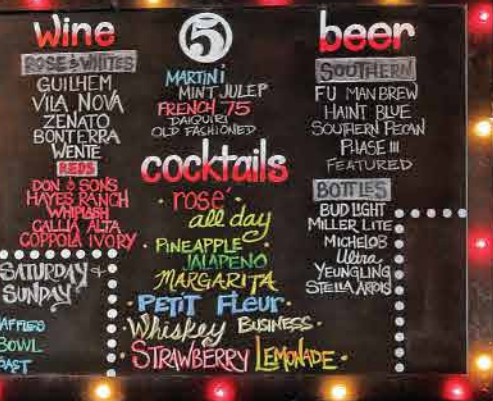 wine
ROSE & WHITES
GUILHEM
VILA NOVA
ZENATO
BONTERRA
WENTE
REDS
DON & SONS
HAYES RANCH
WHIPLASH
CALLIA ALTA
COPPOLA IVORY
SATURDAY &
SUNDAY
BOWL
5
MARTINI
MINT JULEP
FRENCH 75
DAIQUIRI
OLD FASHIONED
cocktails
rosé
all day
PINEAPPLE
JALAPENO
MARGARITA
PETIT FLEUR
Whiskey BUSINESS
STRAWBERRY LEMONADE
beer
SOUTHERN
FU MAN BREW
HAINT BLUE
SOUTHERN PECAN
PHASE III
FEATURED
BOTTLES
BUD LIGHT
MILLER LITE
MICHELOB
Ultra
YEUNGLING
STELLA ARTOIS